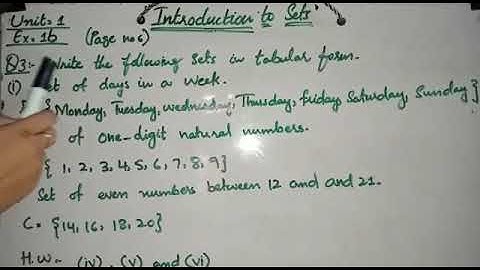 Unit=1
Introduction to Sets
Ex=1b (Page no 6)
Q3:- Write the following Sets in tabular form.
(i) of days in a week.
{Monday, Tuesday, wednesday, Thursday, friday, Saturday, Sunday}
of one-digit natural numbers.
{1, 2, 3, 4, 5, 6, 7, 8, 9}
Set of even numbers between 12 and and 21.
C = {14, 16, 18, 20}
H.W:- (iv), (v) and (vi)